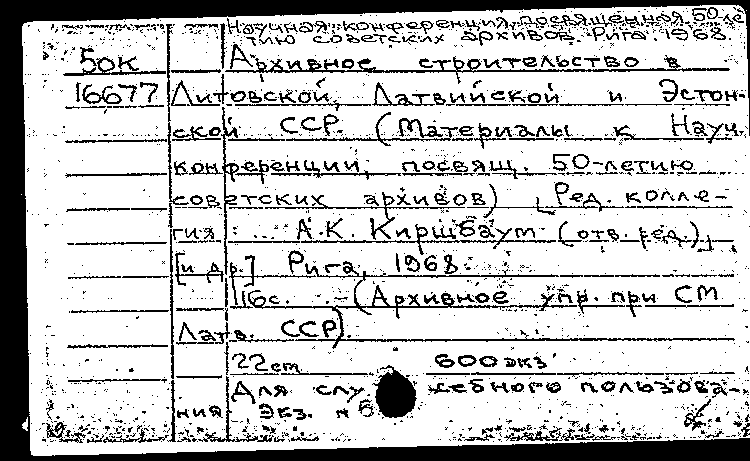 Научная конференция, посвященная 50-ле-
тию советских архивов. Рига. 1968
50К Архивное строительство в
16677 Литовской, Латвийской и Эстон-
ской ССР. (Материалы к Науч.
конференции, посвящ. 50-летию
советских архивов) [Ред. колле-
гия: ... А.К. Киршбаум (отв. ред.)
[и др.] Рига, 1968.
116с. – (Архивное упр. при СМ
Латв. ССР).
22см 600 экз
Для служебного пользова-
ния. Экз. № 6